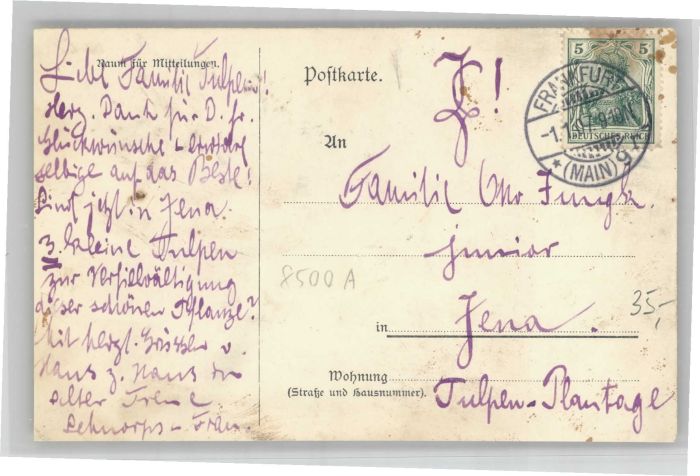 Raum für Mitteilungen.
Liebe Familie Tulpen!
Herz. Dank für D. fr.
Glückwünsche – erwidre
selbige auf das Beste!
Sind jetzt in Jena
3 kleine Tulpen
zur Verfielvältigung
dieser schönen Pflanze?
Mit herzl. Grüssen v.
Haus z. Haus in
alter Treue
Schnorps – Frau.
Postkarte.
An
Familie
junior
in Jena.
Wohnung
(Straße und Hausnummer).
Tulpen-Plantage
8500 A
35,-
5 5
DEUTSCHES REICH
FRANKFURT
(MAIN) 9